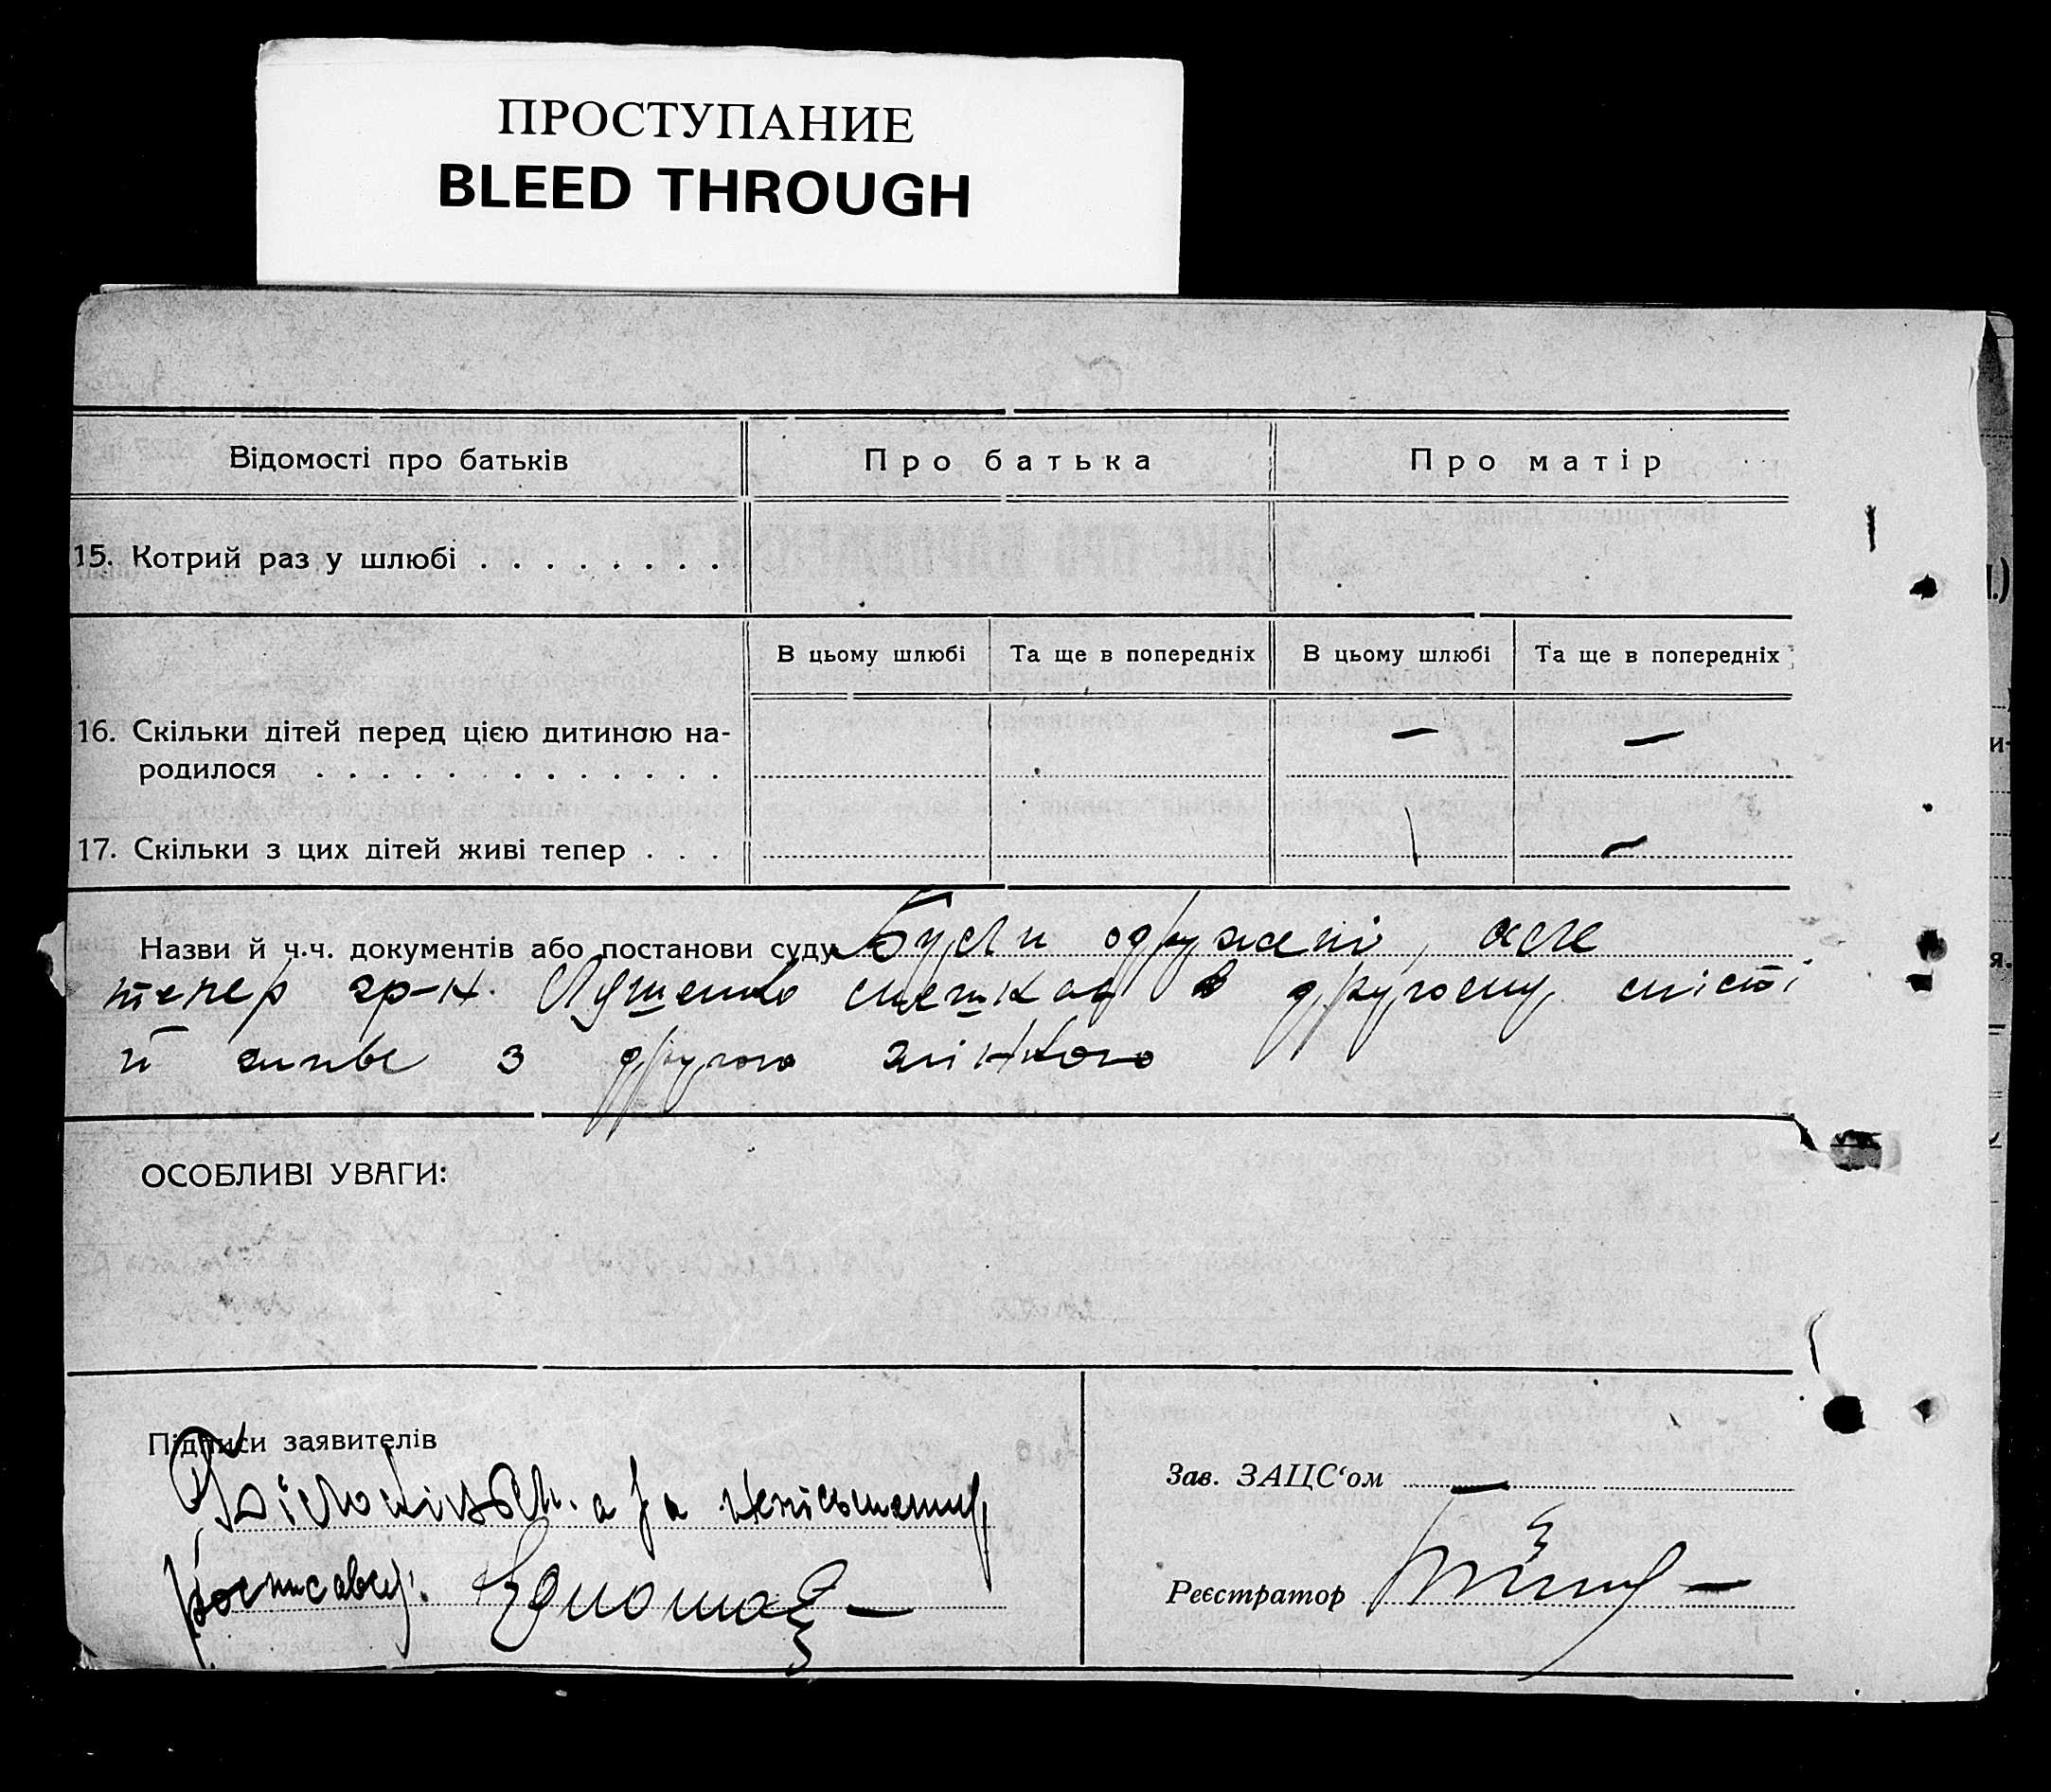 ПРОСТУПАНИЕ
BLEED THROUGH
Відомості про батьків
Про батька
Про матір
15. Котрий раз у шлюбі . . . . . . . .
В цьому шлюбі
Та ще в попередніх
В цьому шлюбі
Та ще в попередніх
16. Скільки дітей перед цією дитиною на-
родилося . . . . . . . . . . . . . — —
17. Скільки з цих дітей живі тепер . . . —
Назви й ч.ч. документів або постанови суду Були одружені, але
тепер гр-н. мешкає в другому місті
й живе з другою жінкою
ОСОБЛИВІ УВАГИ:
Підписи заявителів
а за неписьменну
росписався:
Зав. ЗАЦС‘ом —
Реєстратор